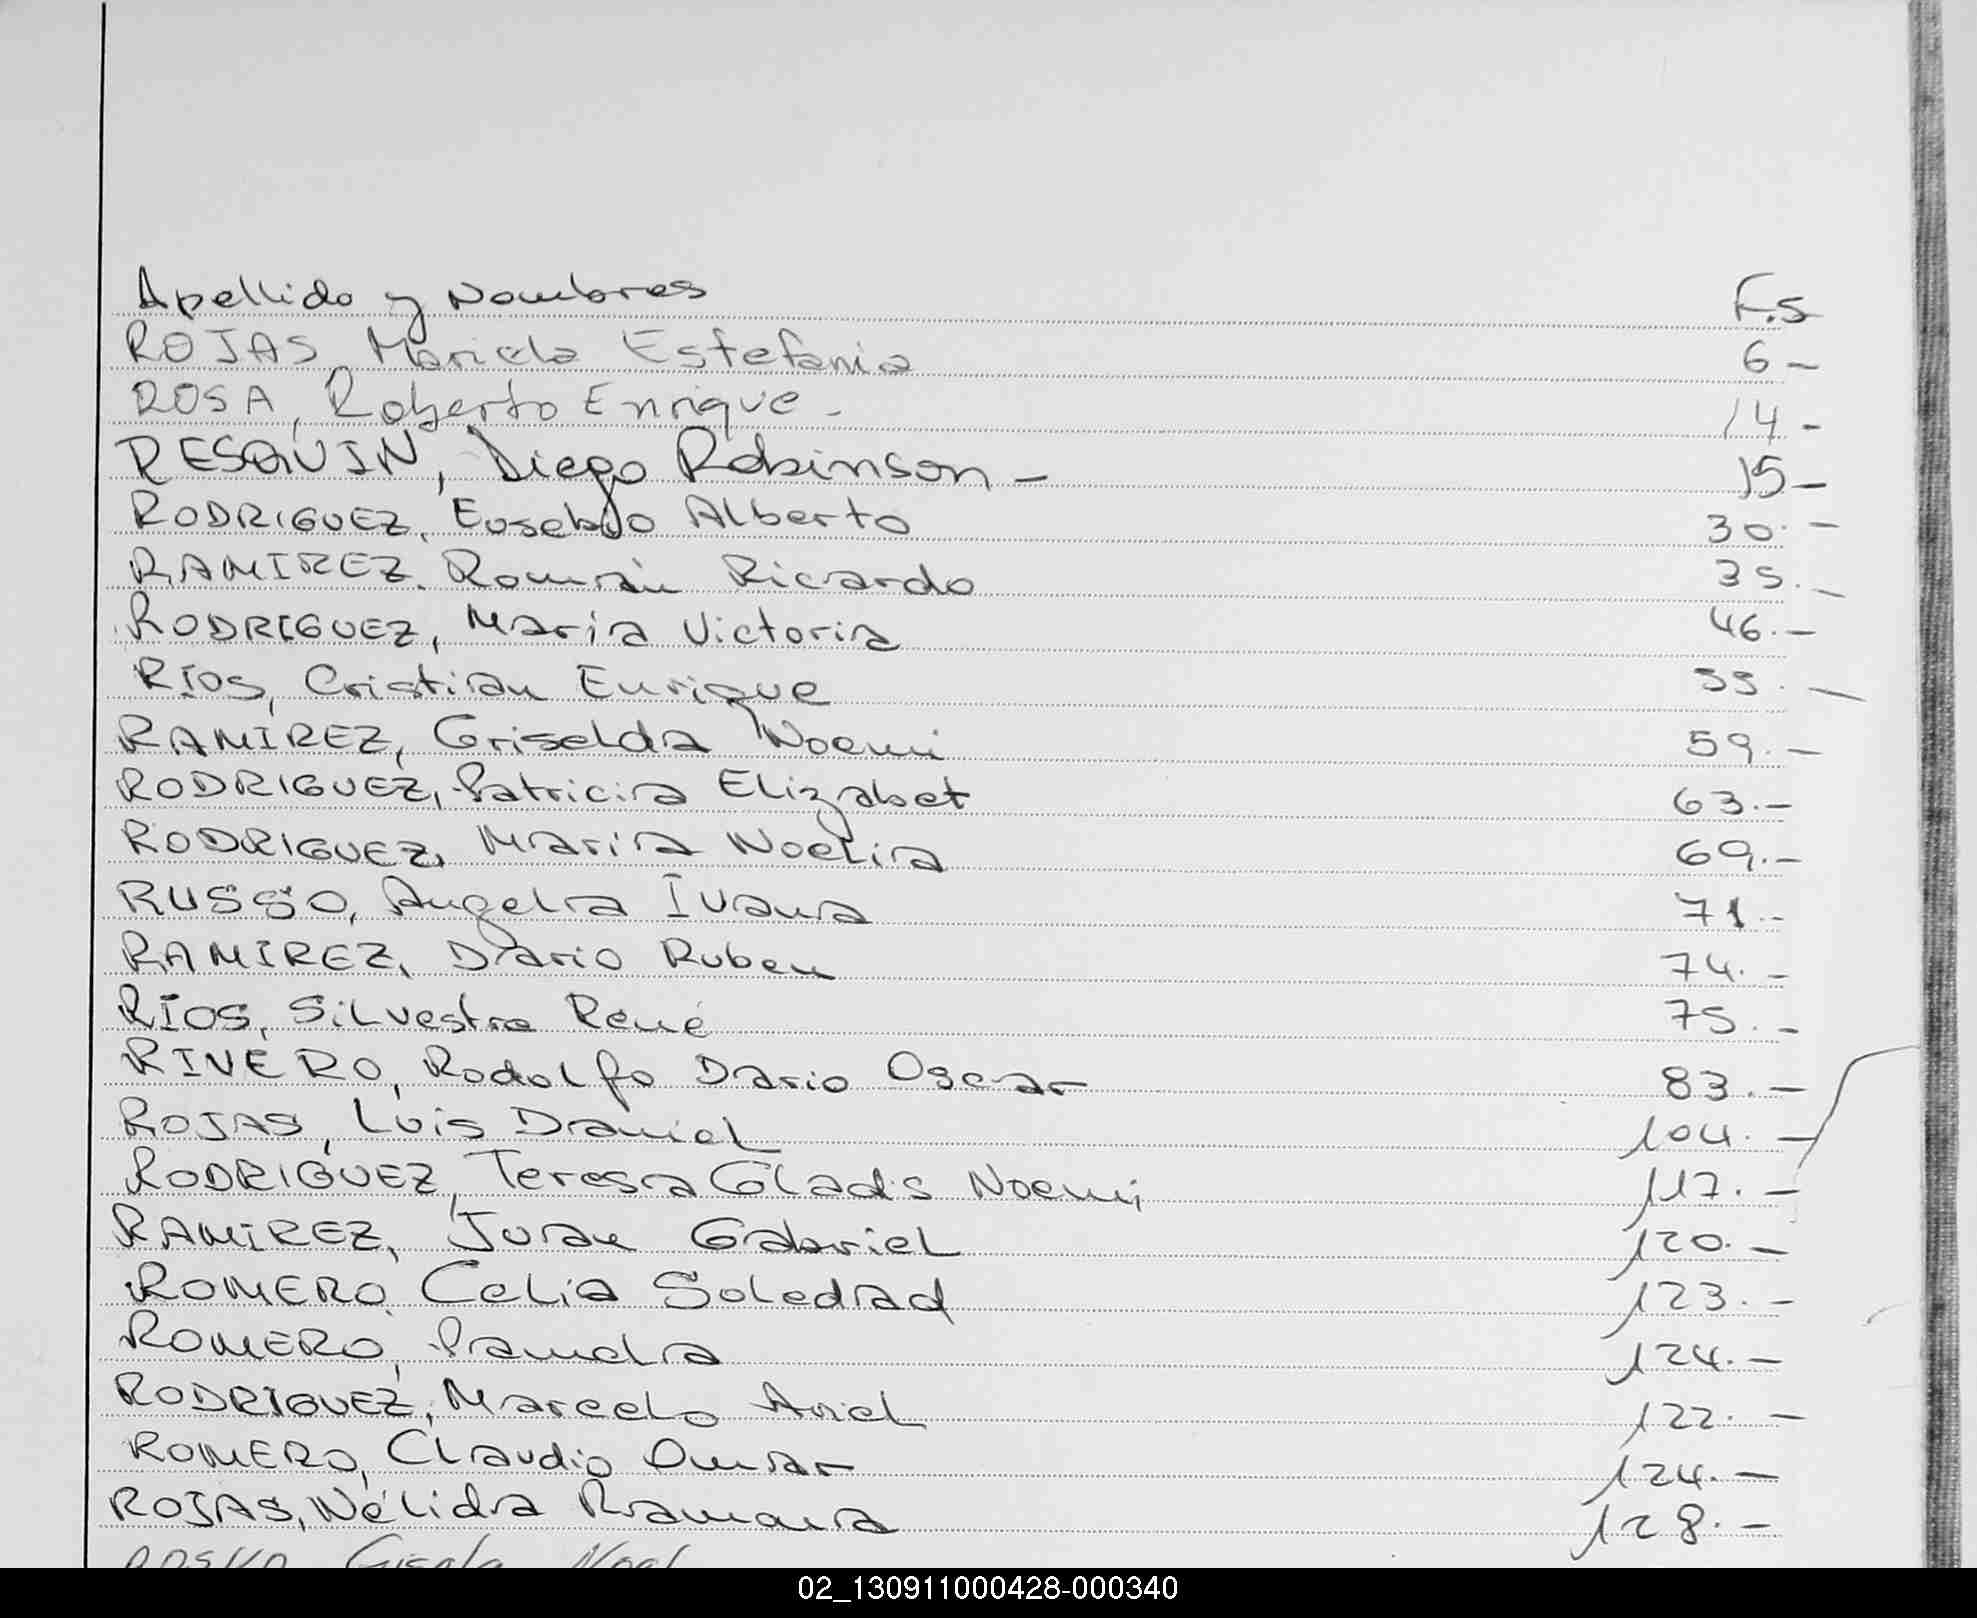 Apellido y Nombres F.s
ROJAS, Mariela Estefania 6 -
ROSA, Roberto Enrique - 14 -
RESQUIN, Diego Robinson - 15 -
RODRIGUEZ, Eusebio Alberto 30. -
RAMIREZ, Román Ricardo 35. -
RODRIGUEZ, María Victoria 46. -
Ríos, Cristian Enrique 55. -
RAMÍREZ, Griselda Noemi 59. -
RODRIGUEZ, Patricia Elizabet 63. -
RODRIGUEZ, María Noelia 69. -
RUSSO, Angela Ivana 71. -
RAMIREZ, Dario Ruben 74. -
RÍOS, Silvestre René 75. -
RIVERO, Rodolfo Dario Oscar 83. -
ROJAS, Luis Daniel 104. -
RODRIGUEZ, Teresa Gladis Noemi 117. -
RAMIREZ, Juan Gabriel 120. -
ROMERO, Celia Soledad 123. -
ROMERO, Pamela 124. -
RODRIGUEZ, Marcelo Ariel 122. -
ROMERO, Claudio Omar 124. -
ROJAS, Nélida Ramona 128. -
Gisela
02_130911000428-000340